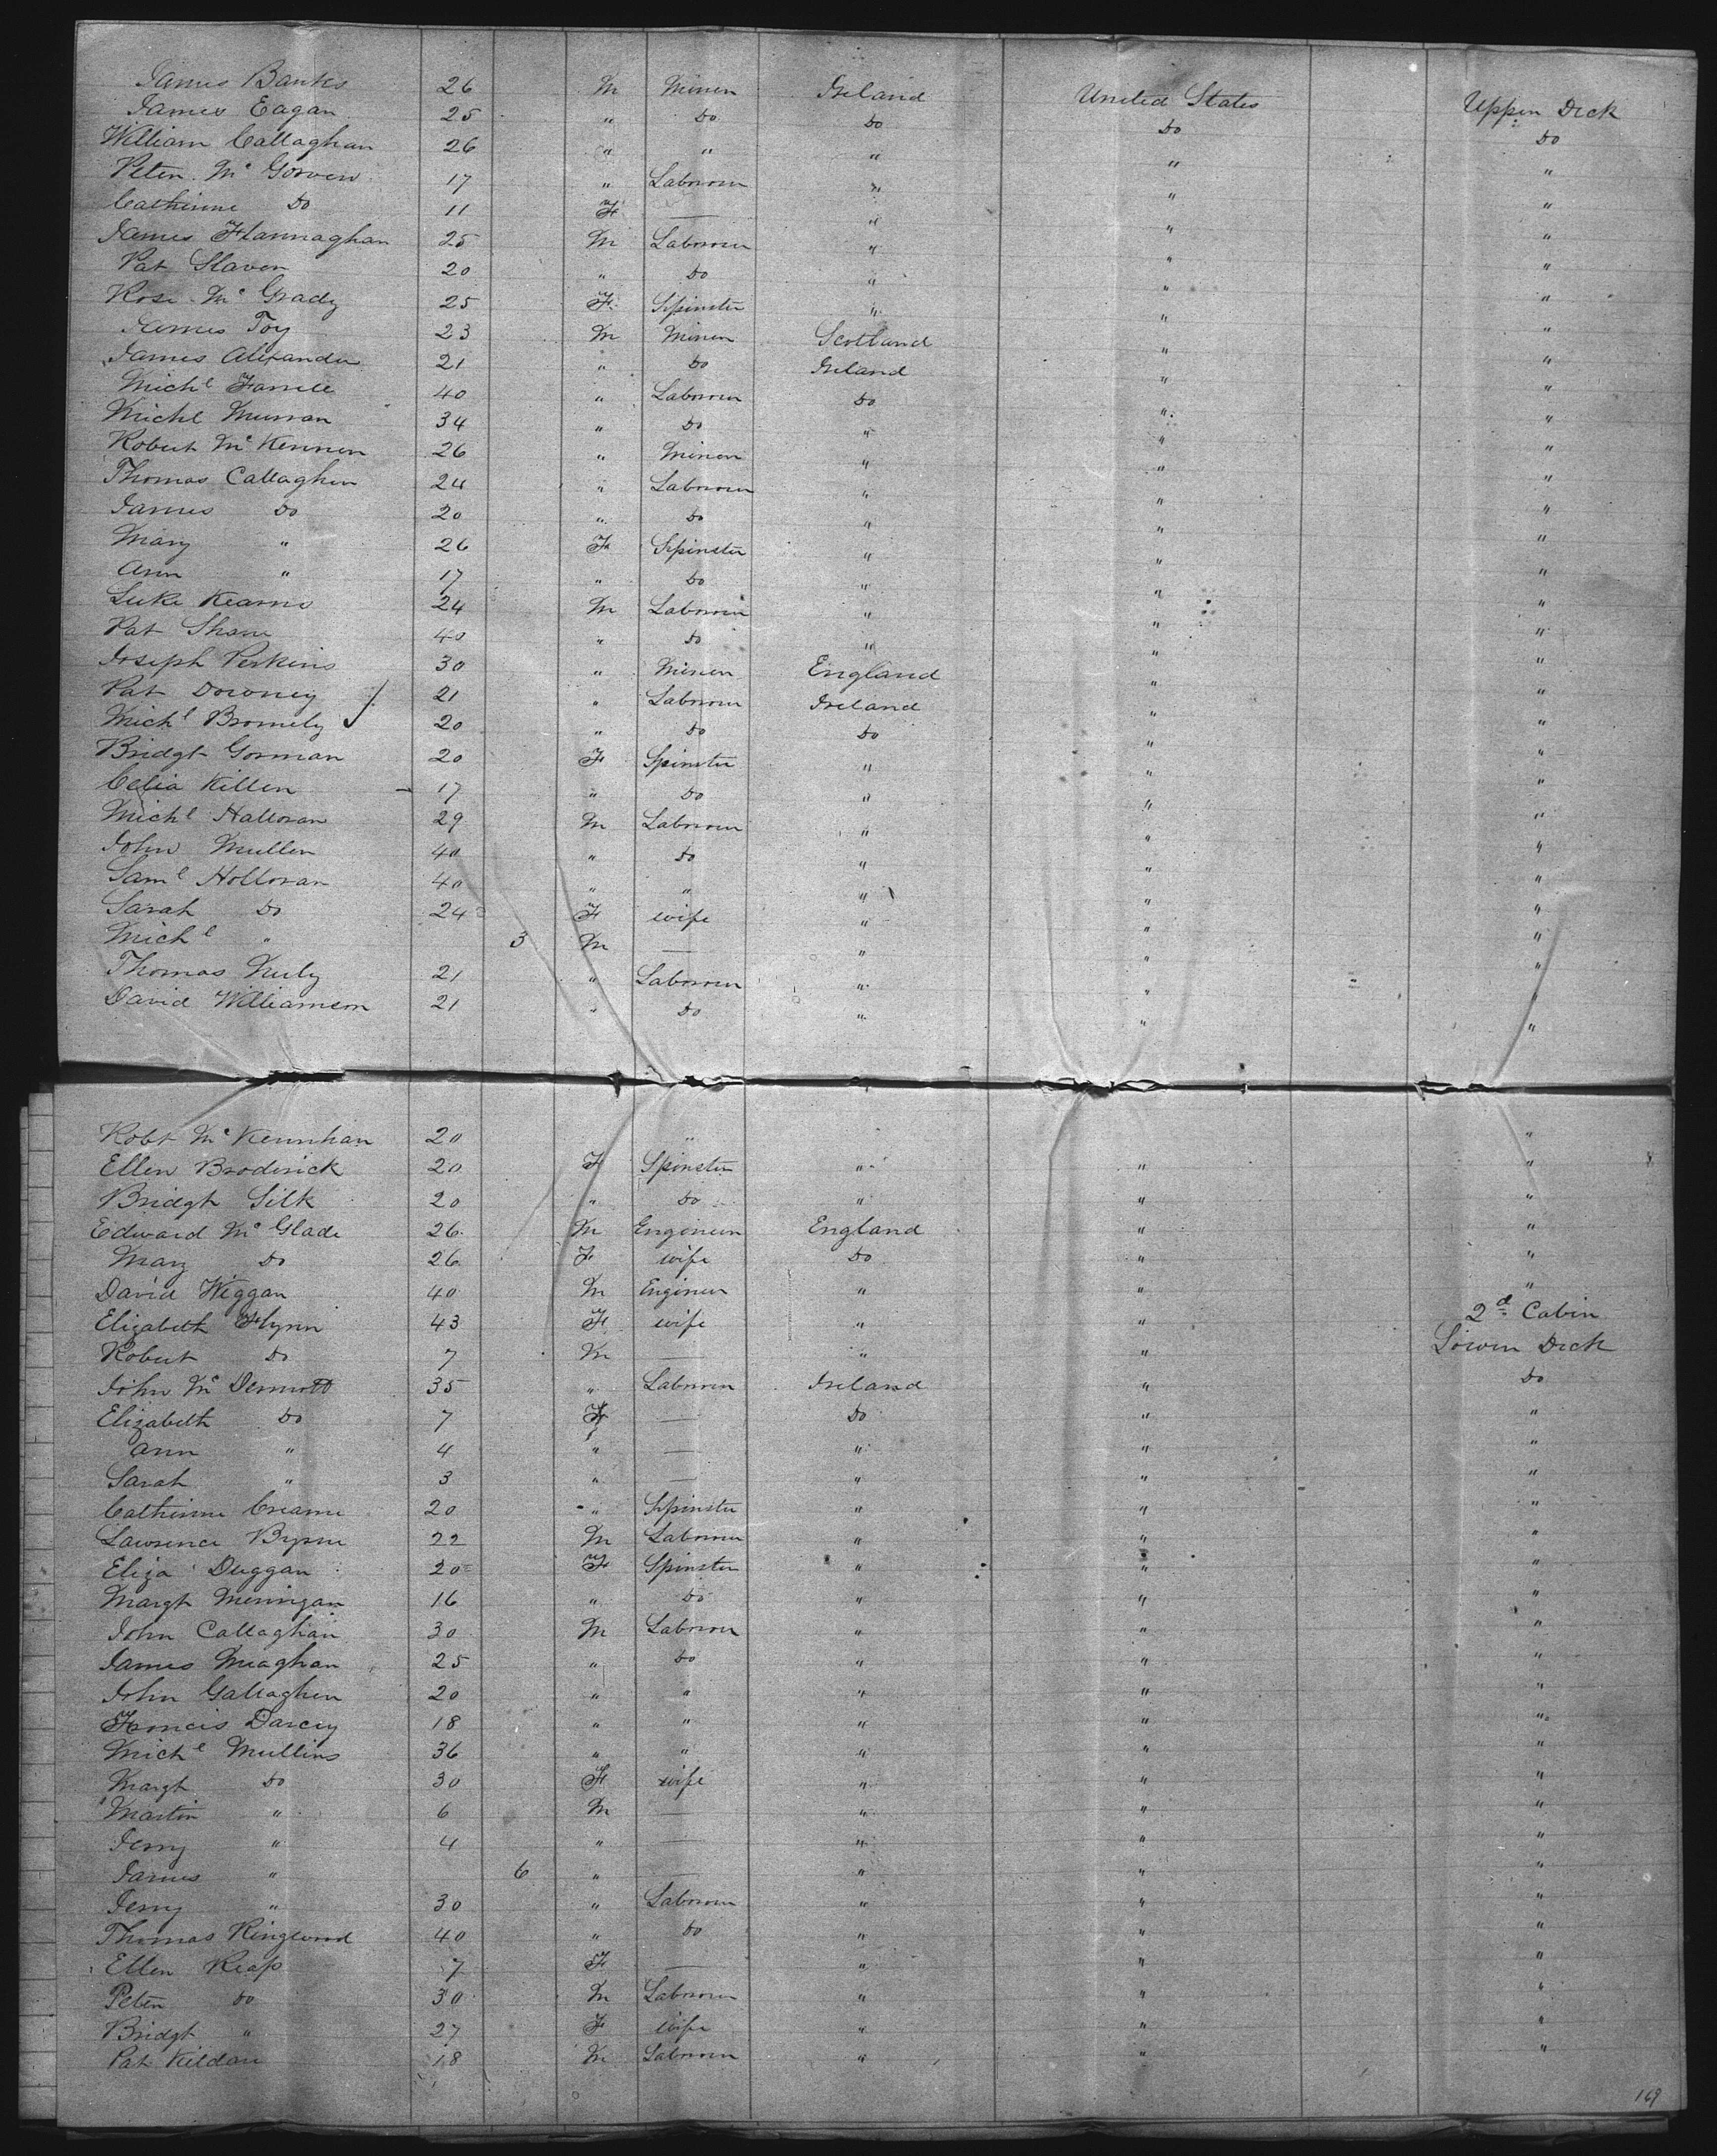 James Banks 26 M Miner Ireland United States Upper Deck
James Eagan 25 " Do Do Do Do
William Callaghan 26 " " " " "
Peter Mc Gorven 17 " Labourer " " "
Catherine Do 11 F — " " "
James Flannaghan 25 M Labourer " " "
Pat Slaven 20 " Do " " "
Rose Mc Grady 25 F Spinster " " "
James Toy 23 M Miner Scotland " "
James Alexander 21 " Do Ireland " "
Michl Farrell 40 " Labourer Do " "
Michl Murran 34 " Do " " "
Robert Mc Kennen 26 " Miner " " "
Thomas Callaghen 24 " Labourer " " "
James Do 20 " Do " " "
Mary " 26 F Spinster " " "
Ann " 17 " Do " " "
Luke Kearns 24 M Labourer " " "
Pat Shaw 40 " Do " " "
Joseph Perkins 30 " Miner England " "
Pat Downey 21 " Labourer Ireland " "
Michl Bromely 20 " Do Do " "
Bridgt Gorman 20 F Spinster " " "
Celia Killen 17 " Do " " "
Michl Halloran 29 M Labourer " " "
John Mullen 40 " Do " " "
Saml Holloran 40 " " " " "
Sarah Do 24 F wife " " "
Michl " 3 M — " " "
Thomas Nuly 21 " Labourer " " "
David Williamson 21 " Do " " "
Robt Mc Kennhan 20 " "
Ellen Broderick 20 F Spinster " " "
Bridgt Silk 20 " Do " " "
Edward Mc Glade 26 M Engineer England " "
Mary Do 26 F wife Do " "
David Wiggan 40 M Engineer " " "
Elizabeth Flynn 43 F wife " " 2d Cabin
Robert Do 7 M — " " Lower Deck
John Mc Dermott 35 " Labourer Ireland " Do
Elizabeth Do 7 F — Do " "
Ann " 4 " — " " "
Sarah " 3 " — " " "
Catherine Creame 20 " Spinster " " "
Lawrence Byrne 22 M Labourer " " "
Eliza Duggan 20 F Spinster " " "
Margt Mennigan 16 " Do " " "
John Callaghan 30 M Labourer " " "
James Meaghan 25 " Do " " "
John Gallagher 20 " " " " "
Francis Darcey 18 " " " " "
Michl Mullins 36 " " " " "
Margt Do 30 F wife " " "
Martin " 6 M — " " "
Jerry " 4 " — " " "
James " 6 " — " " "
Jerry " 30 " Labourer " " "
Thomas Ringwood 40 " Do " " "
Ellen Reap 7 F — " " "
Peter Do 30 M Labourer " " "
Bridgt " 27 F wife " " "
Pat Kildare 18 M Labourer " " "
169